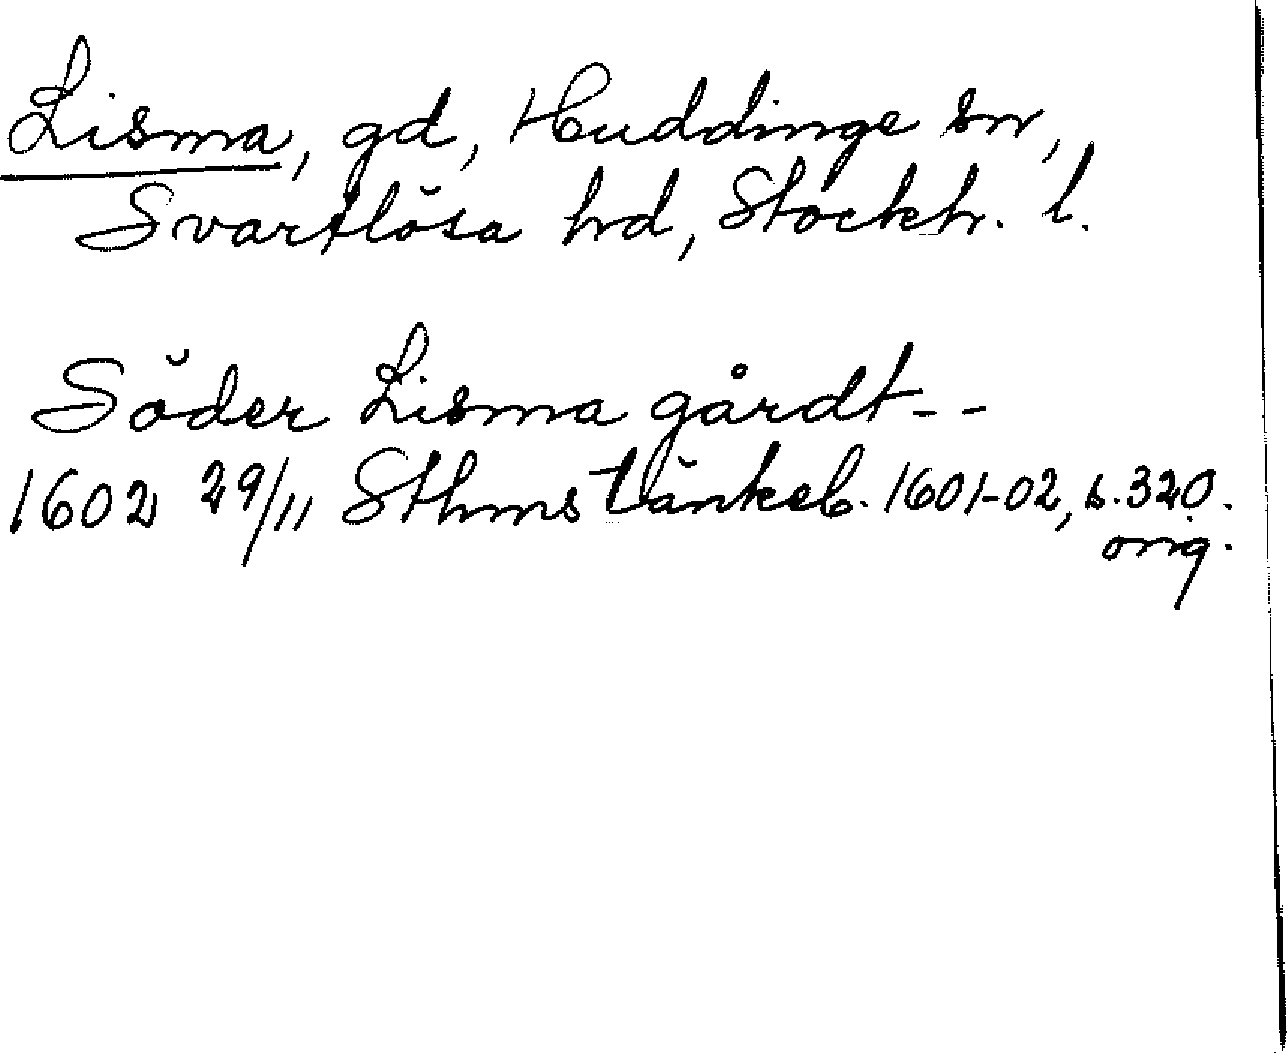 Lisma, gd, Huddinge sn,
Svartlösa hd, Stockh. l.
Söder Lisma gårdt--
1602 29/11 Sthms tänkeb. 1601-02, s. 320.
orig.